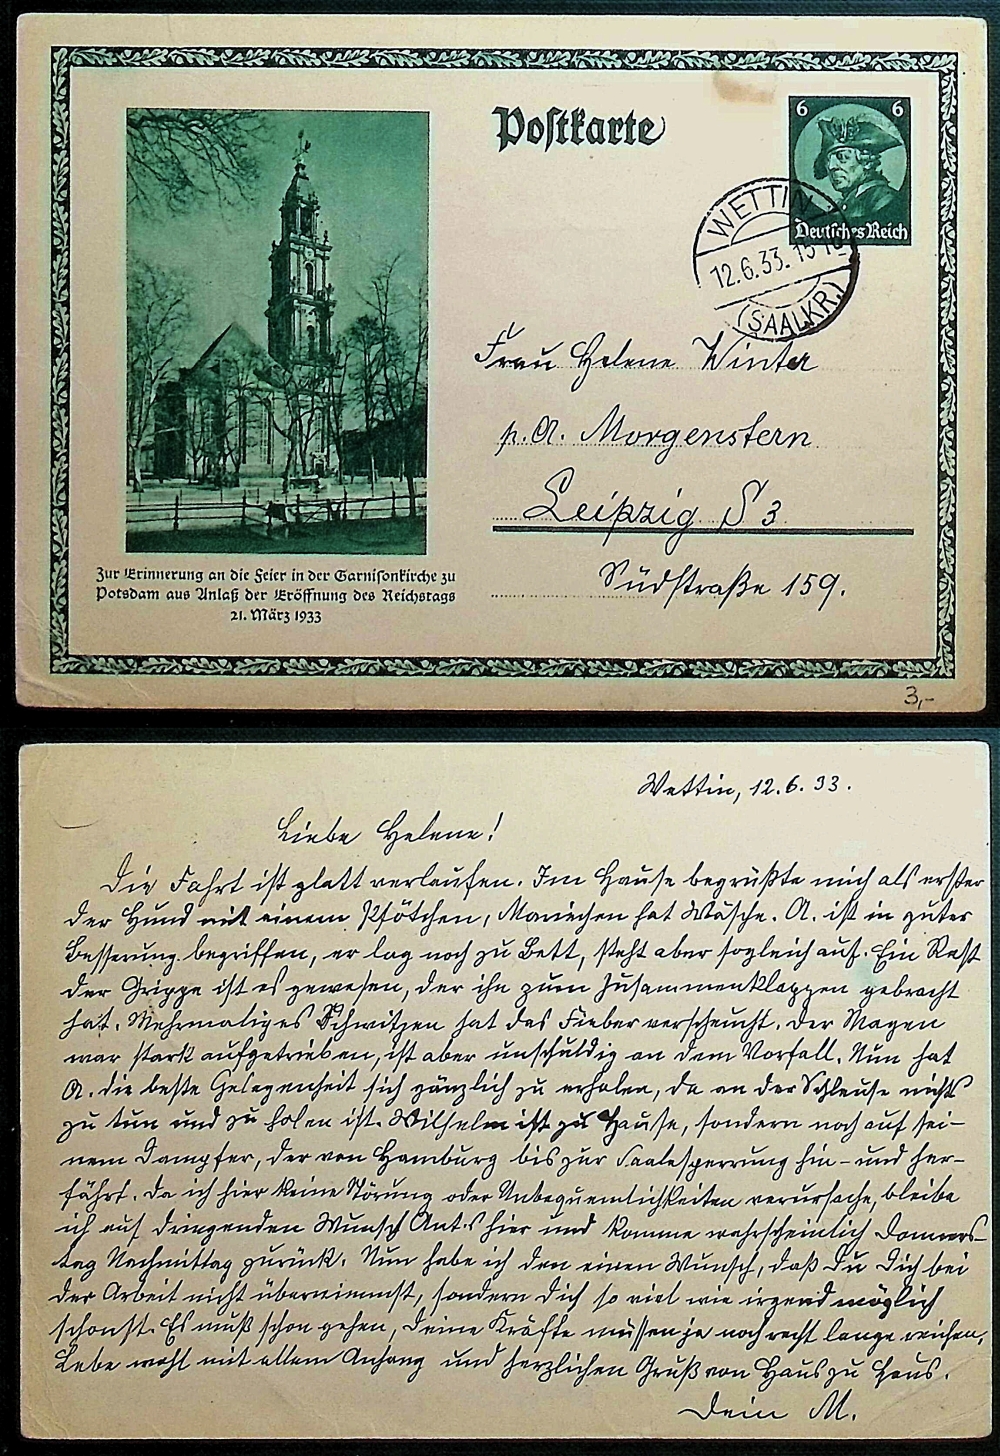 Postkarte
6 6
Deutsches Reich
WETTIN
12.6.33. 15
(SAALKR.)
Frau Helene Winter
p. A. Morgenstern
Leipzig S 3
Südstraße 159.
Zur Erinnerung an die Feier in der Garnisonkirche zu
Potsdam aus Anlaß der Eröffnung des Reichstags
21. März 1933
3,-
Wettin, 12.6.33.
Liebe Helene!
Die Fahrt ist glatt verlaufen. Im Hause begrüßte mich als erster
der Hund mit einem Pfötchen, Mariechen hat Wäsche. A. ist in guter
Besserung begriffen, er lag noch zu Bett, steht aber sogleich auf. Ein Rest
der Grippe ist es gewesen, der ihn zum Zusammenklappen gebracht
hat. Mehrmaliges Schwitzen hat das Fieber verscheucht. Der Magen
war stark aufgetrieben, ist aber unschuldig an dem Vorfall. Nun hat
A. die beste Gelegenheit sich gänzlich zu erholen, da an der Schleuse nichts
zu tun und zu holen ist. Wilhelm ist zu Hause, sondern noch auf sei-
nem Dampfer, der von Hamburg bis zur Saalesperrung hin- und her-
fährt. Da ich hier keine Störung oder Unbequemlichkeiten verursache, bleibe
ich auf dringenden Wunsch hier und komme wahrscheinlich Donners-
tag Nachmittag zurück. Nun habe ich den einen Wunsch, daß Du Dich bei
der Arbeit nicht übernimmst, sondern Dich so viel wie irgend möglich
schonst. Es muß schon gehen, Deine Kräfte müssen ja noch recht lange reichen.
Lebe wohl mit allem Anhang und herzlichen Gruß von Haus zu Haus.
Dein M.